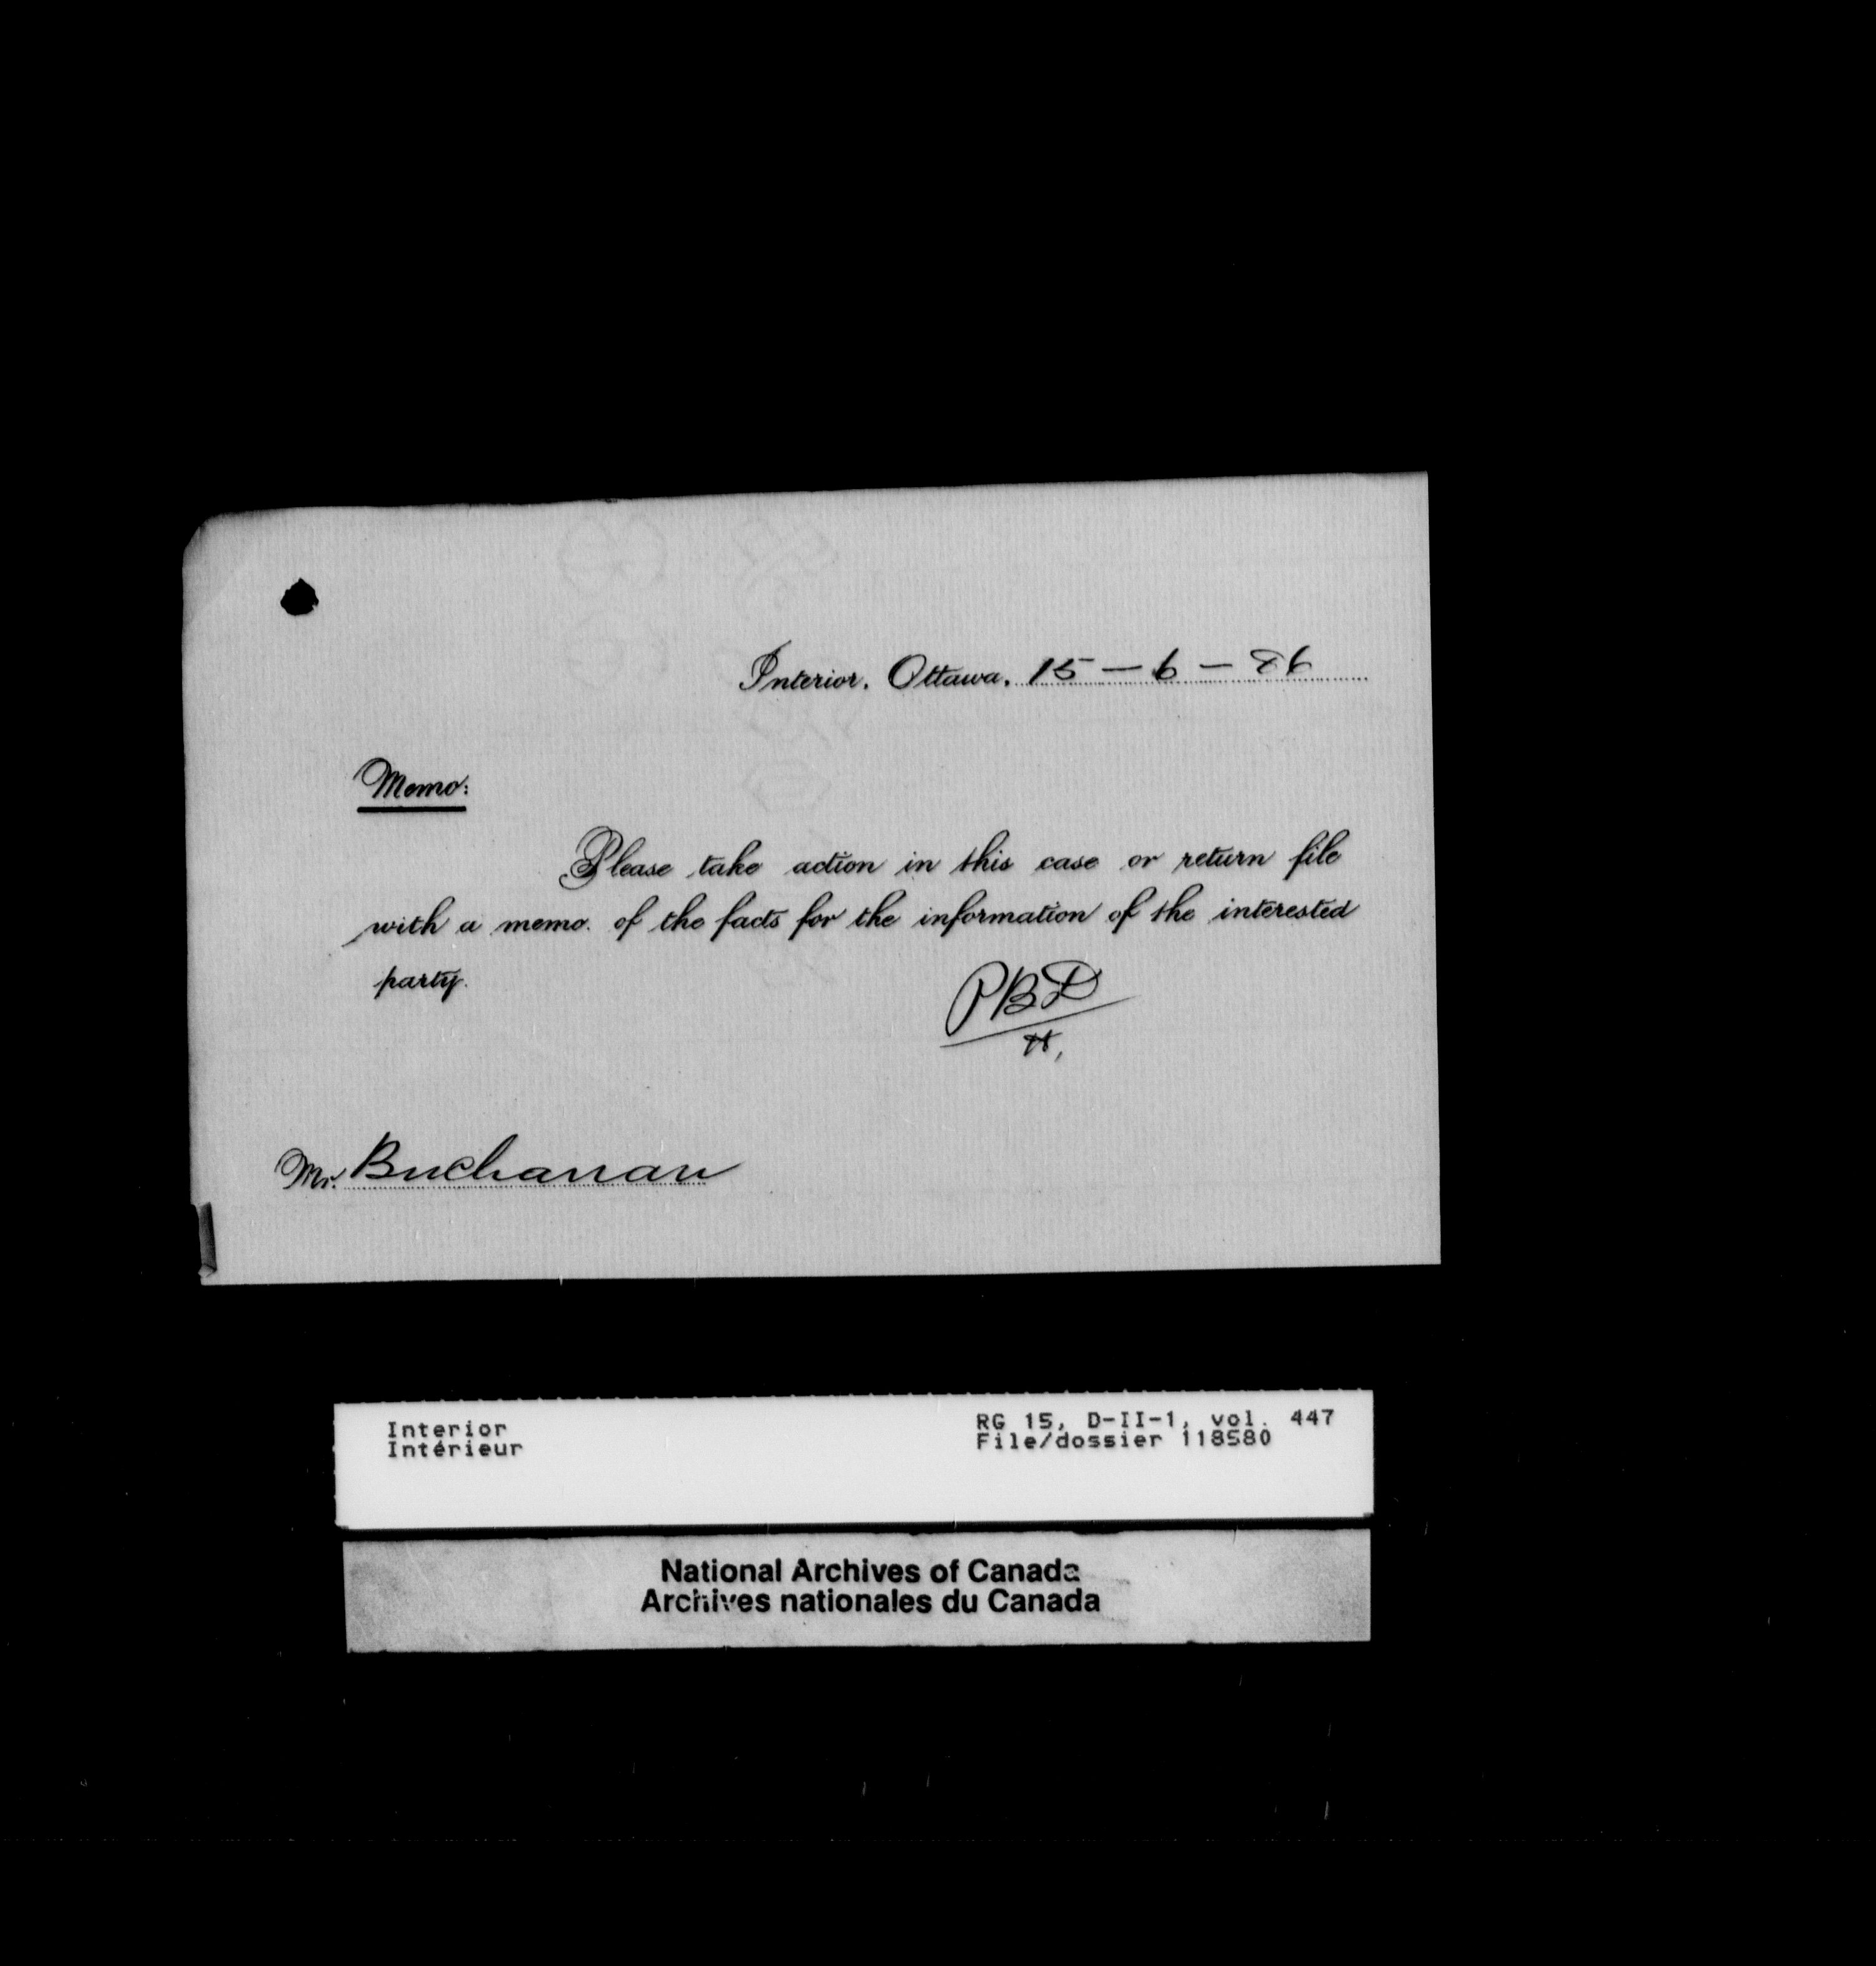 Interior. Ottawa. 15 - 6 - 86
Memo:
Please take action in this case or return file
with a memo. of the facts for the information of the interested
party.
PBD
H,
Mr. Buchanan
Interior
Intérieur
RG 15, D-II-1, vol. 447
File/dossier 118580
National Archives of Canada
Archives nationales du Canada